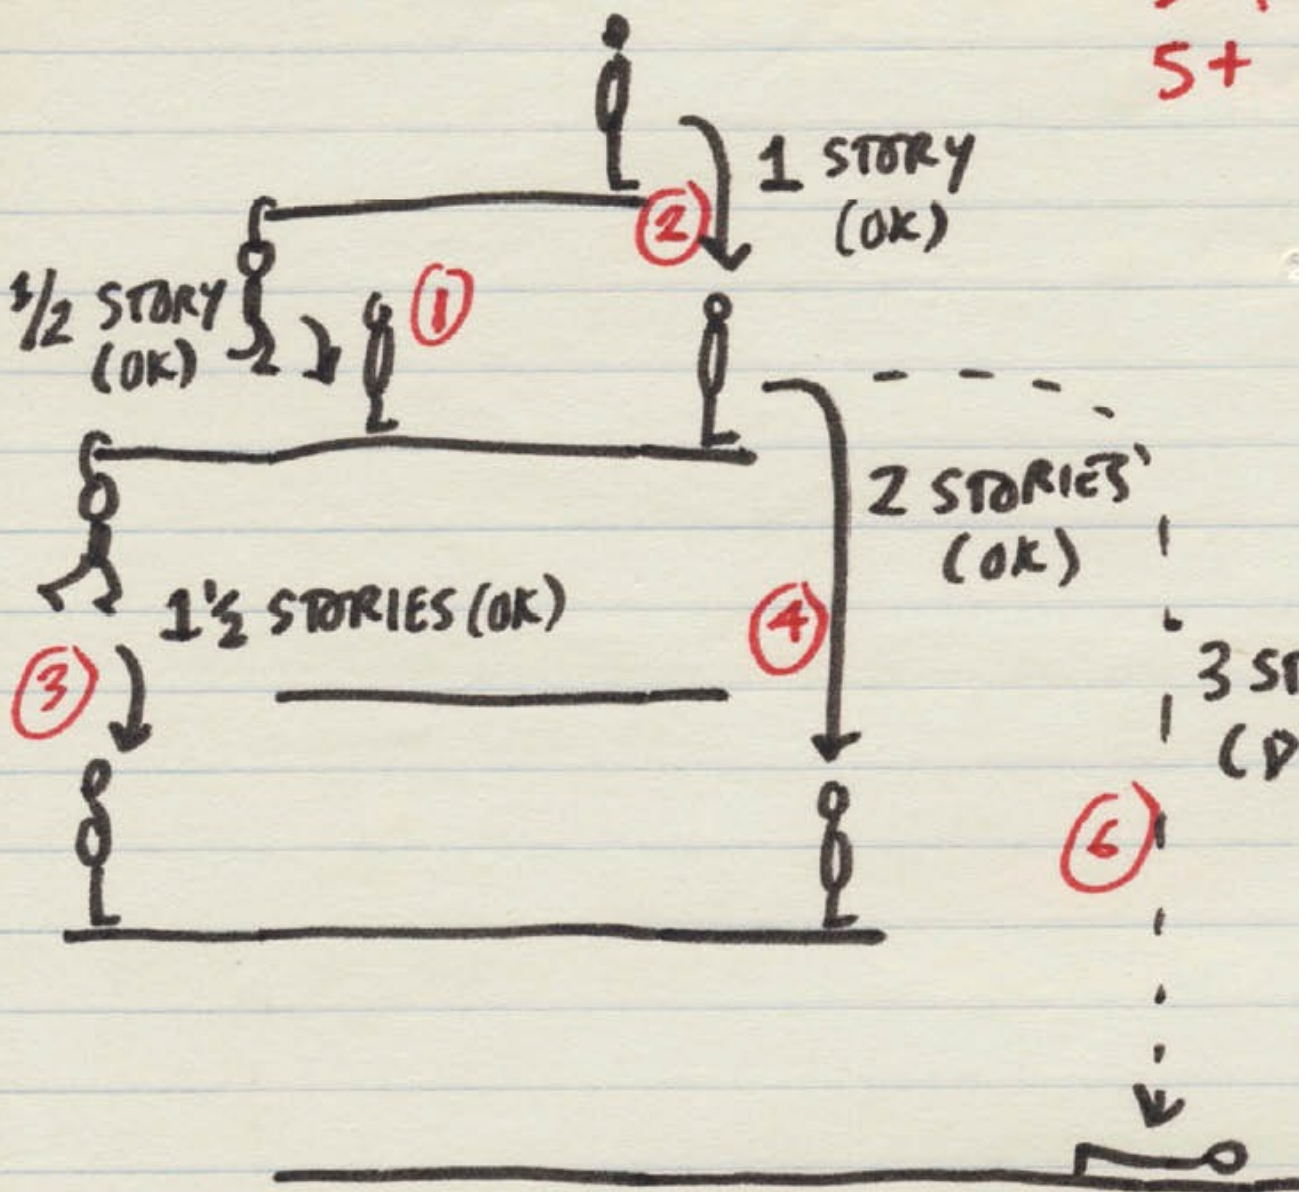 5+
1 STORY
(OK)
2
1/2 STORY
(OK)
1
2 STORIES
(OK)
1 1/2 STORIES (OK)
4
3
3 ST
(D
6